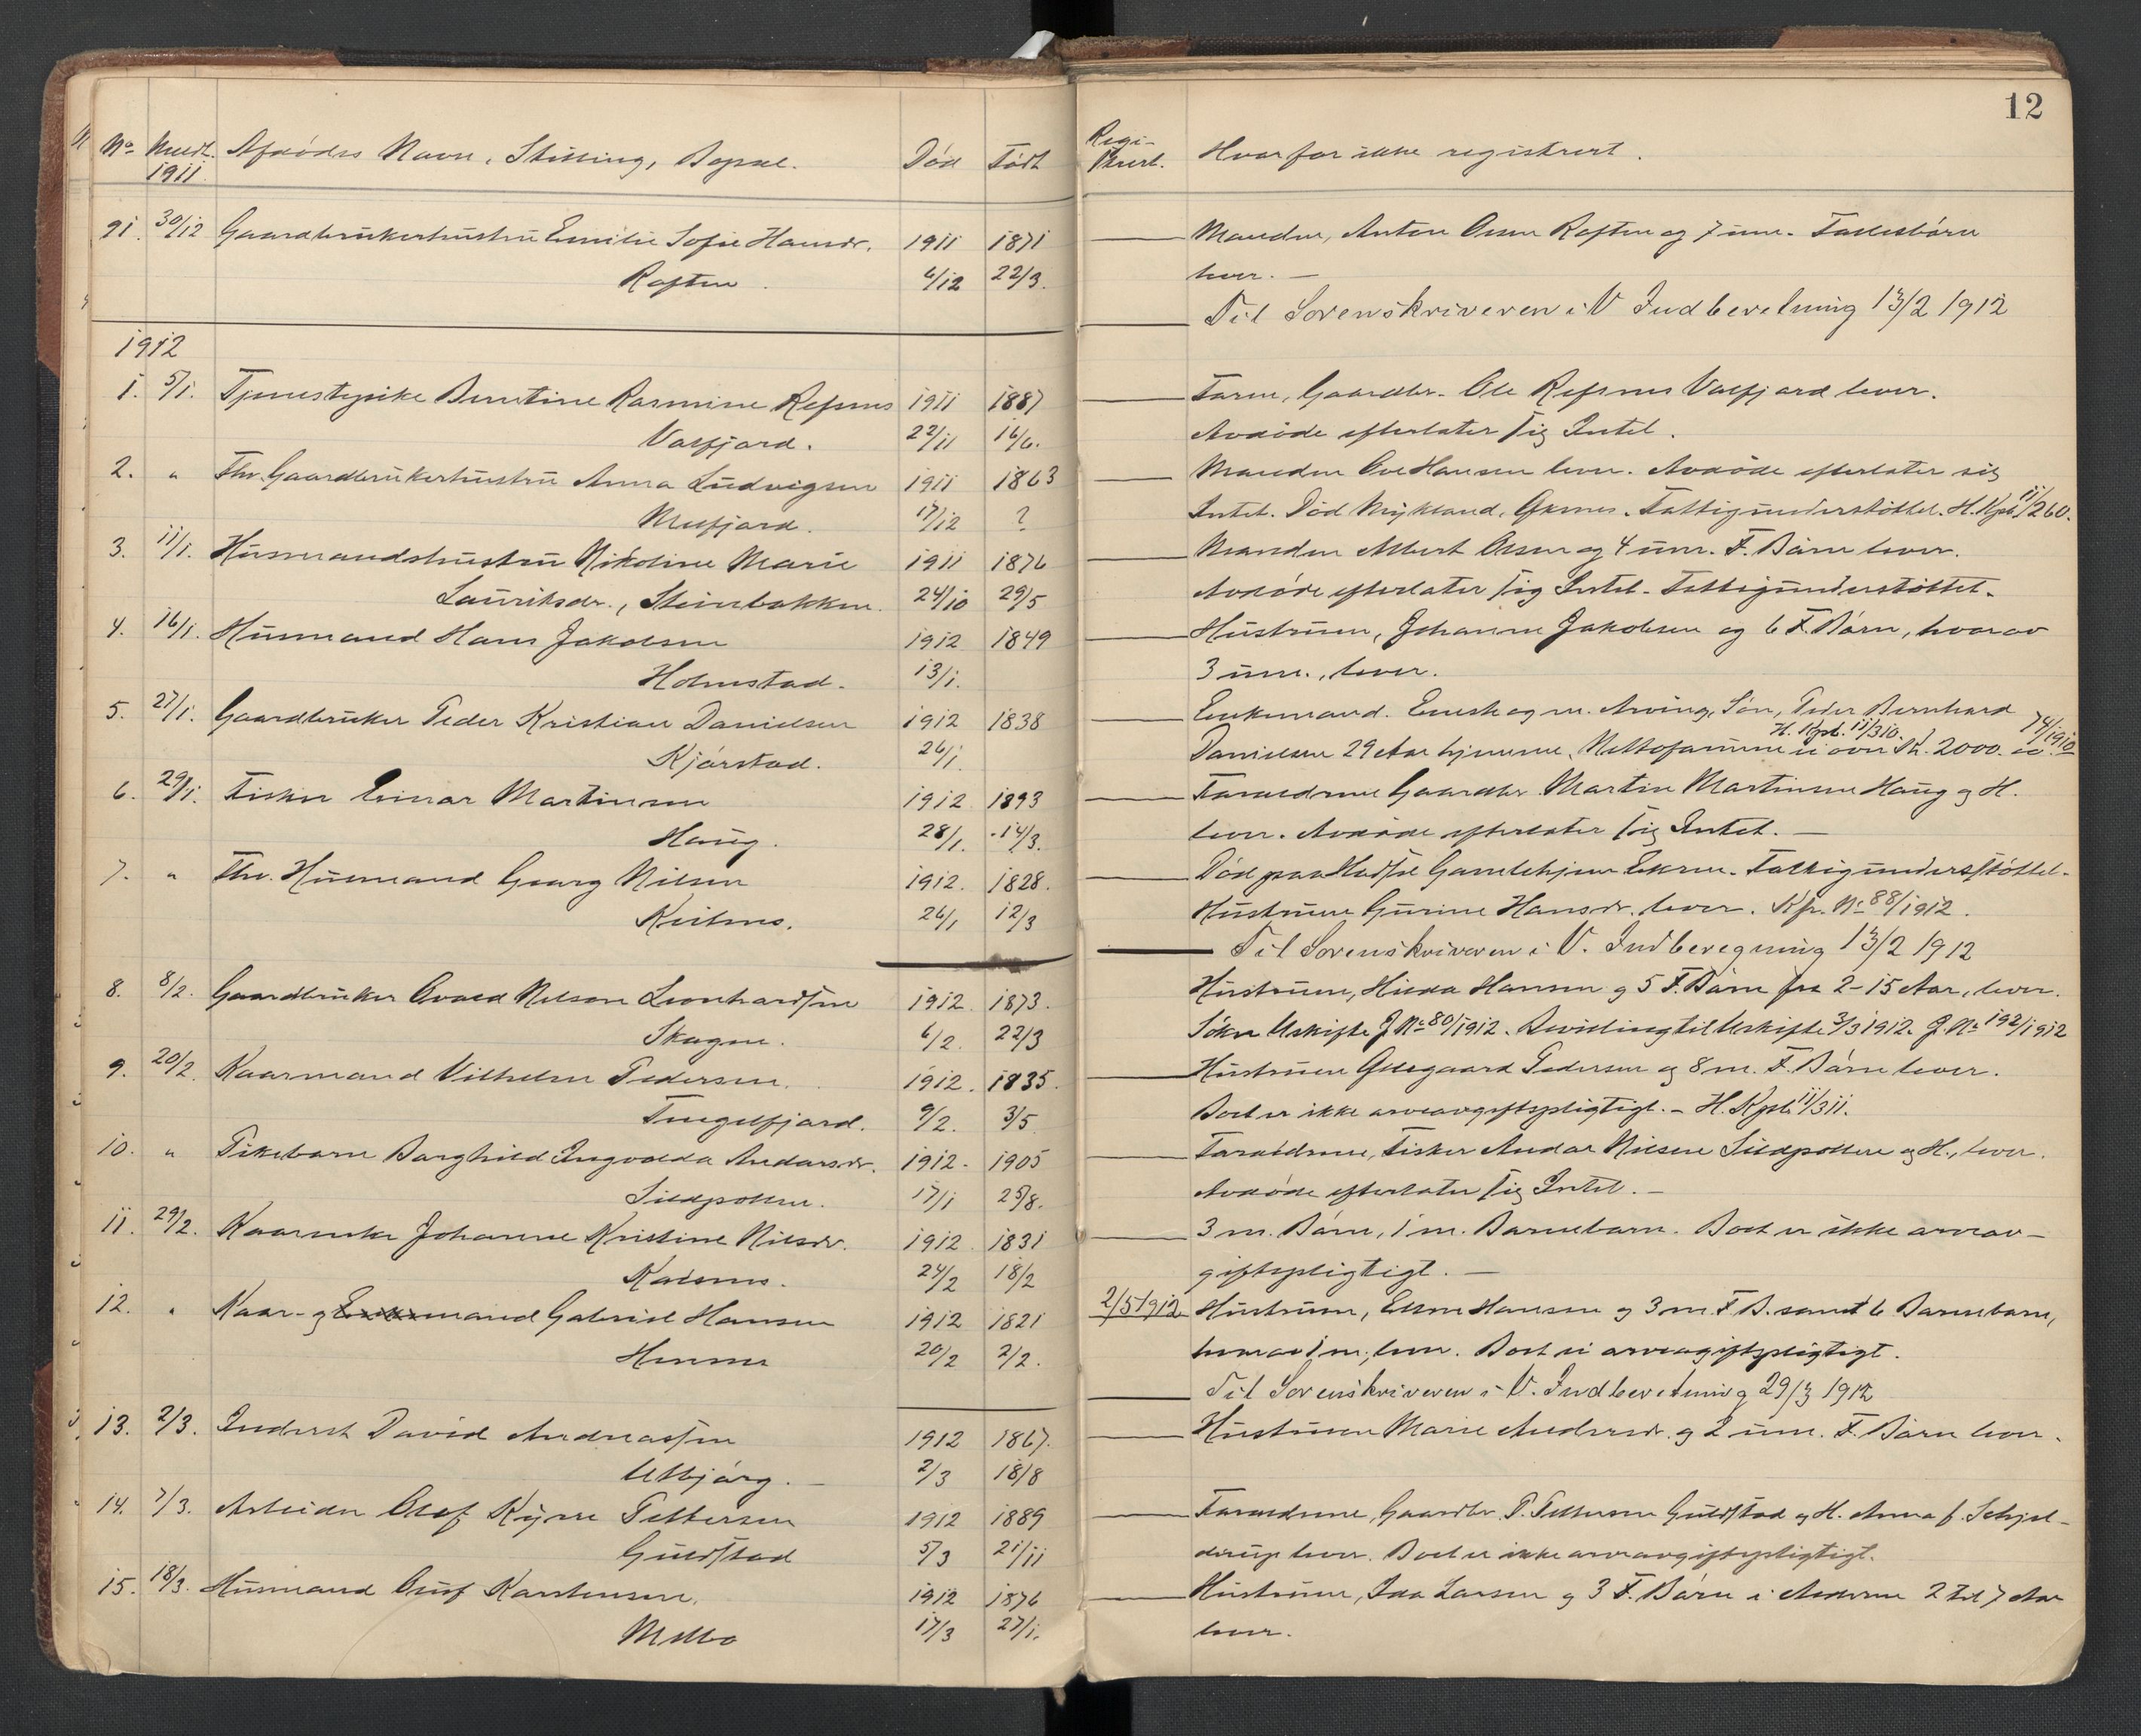 12
No Meldt. Afdødes Navn, Stilling, Bopæl. Død Født Regi- Hvorfor ikke registrert.
1911 strert.
91. 30/12 Gaardbrukerhustru Emilie Sofie Hansdr. 1911 1871 Manden, Anton Olsen Raften og 7 um. Fællesbørn
Raften. 6/12 22/3. lever. —
Til Sorenskriveren i V Indberetning 13/2 1912
1912
1. 5/1. Tjenestepike Berntine Rasmine Refsnes 1911 1887 Faren, Gaardbr. Ole Refsnes Valfjord lever.
Valfjord. 22/11 16/6. Avdøde efterlater sig Intet.
2. " Fhv. Gaardbrukerhustru Anna Ludvigsen 1911 1863 Manden Ove Hansen lever. Avdøde efterlater sig
Melfjord. 17/12 ? Intet. Død Mykland, Øksnes. Fattigunderstøttet. H. Kpb. 11/260.
3. 11/1. Husmandshustru Nikoline Marie 1911 1876 Manden Albert Olsen og 4 um. F. Børn lever.
Lauritsdr., Steinbakken. 24/10 29/5 Avdøde efterlater sig Intet. Fattigunderstøttet.
4. 16/1. Husmand Hans Jakobsen 1912 1849 Hustruen, Johanne Jakobsen og 6 F. Børn, hvorav
Holmstad. 13/1. 3 um., lever.
5. 27/1. Gaardbruker Peder Kristian Danielsen 1912 1838 Enkemand. Eneste og m. Arving, Søn, Peder Bernhard
H. Kpb. 11/310. 74/1910
Kjørstad. 26/1. Danielsen 29 Aar hjemme. Nettoformue ei over Kr. 2000.00
6. 29/1. Fisker Einar Martinsen 1912 1893 Forældrene Gaardbr. Martin Martinsen Haug og H.
Haug. 28/1. 14/3. lever. Avdøde efterlater sig Intet. —
7. " Fhv. Husmand Georg Nilsen 1912. 1828. Død paa Hadsel Gamlehjem Ekren. Fattigunderstøttet.
26/1 12/3 Hustruen Gurine Hansdr. lever. Kp. No 88/1912.
Til Sorenskriveren i V. Indberegning 13/2 1912
8. 8/2. Gaardbruker Nelson Leonhardsen 1912. 1873. Hustruen, Hilda Hansen og 5 F. Børn fra 2-15 Aar, lever.
Skagen. 6/2. 22/3 Søkn Uskifte J No 80/1912. Bevilling til Uskifte 3/3 1912. J. No 192/1912
9. 20/2. Kaarmand Vilhelm Pedersen. 1912. 1835. Hustruen Pedersen og 8 m. F. Børn lever.
Tengelfjord. 9/2. 3/5 Boet er ikke arveavgiftspligtigt. — H. Kpb. 11/311.
10. " Pikebarn Borghild Ingvalda Andorsdr. 1912. 1905 Forældrene, Fisker Andor Nilsen Sildpollen og H., lever.
Sildpollen. 17/1 25/8. Avdøde efterlater sig Intet. —
11. 29/2. Kaarenke Johanne Kristine Nilsdr. 1912. 1831 3 m. Børn, 1 m. Barnebarn. Boet er ikke arveav-
Kalsnes. 24/2 18/2 giftspligtigt. —
12. " Kaar- og Enkemand Gabriel Hansen 1912 1821 2/5 1912 Hustruen, Ellen Hansen og 3 m. F. B. samt 6 Barnebarn,
20/2 2/2. hvorav 1 m., lever. Boet ei arveavgiftspligtigt.
Til Sorenskriveren i V. Indberetning 29/3 1912
13. 2/3. Inderst David Andreassen 1912 1867. Hustruen Marie Andersdr. og 2 um. F. Børn lever.
Utbjørg. — 2/3 18/8
14. 7/3. Arbeider Olaf Kyrre Pettersen 1912 1889 Forældrene, Gaardbr. P. Pettersen Guldstad og H. Anna f. Schjel-
Guldstad 5/3 21/11 derup lever. Boet er ikke arveavgiftspligtigt.
15. 18/3. Husmand Oluf Karstensen. 1912 1876 Hustruen, Ida Larsen og 3 F. Børn i Alderen 2 til 7 Aar
Melbo 17/3 27/1. lever.